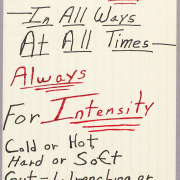 —In All Ways
At All Times—
Always
For Intensity
Cold or Hot
Hard or Soft
Gut-Wrenching or